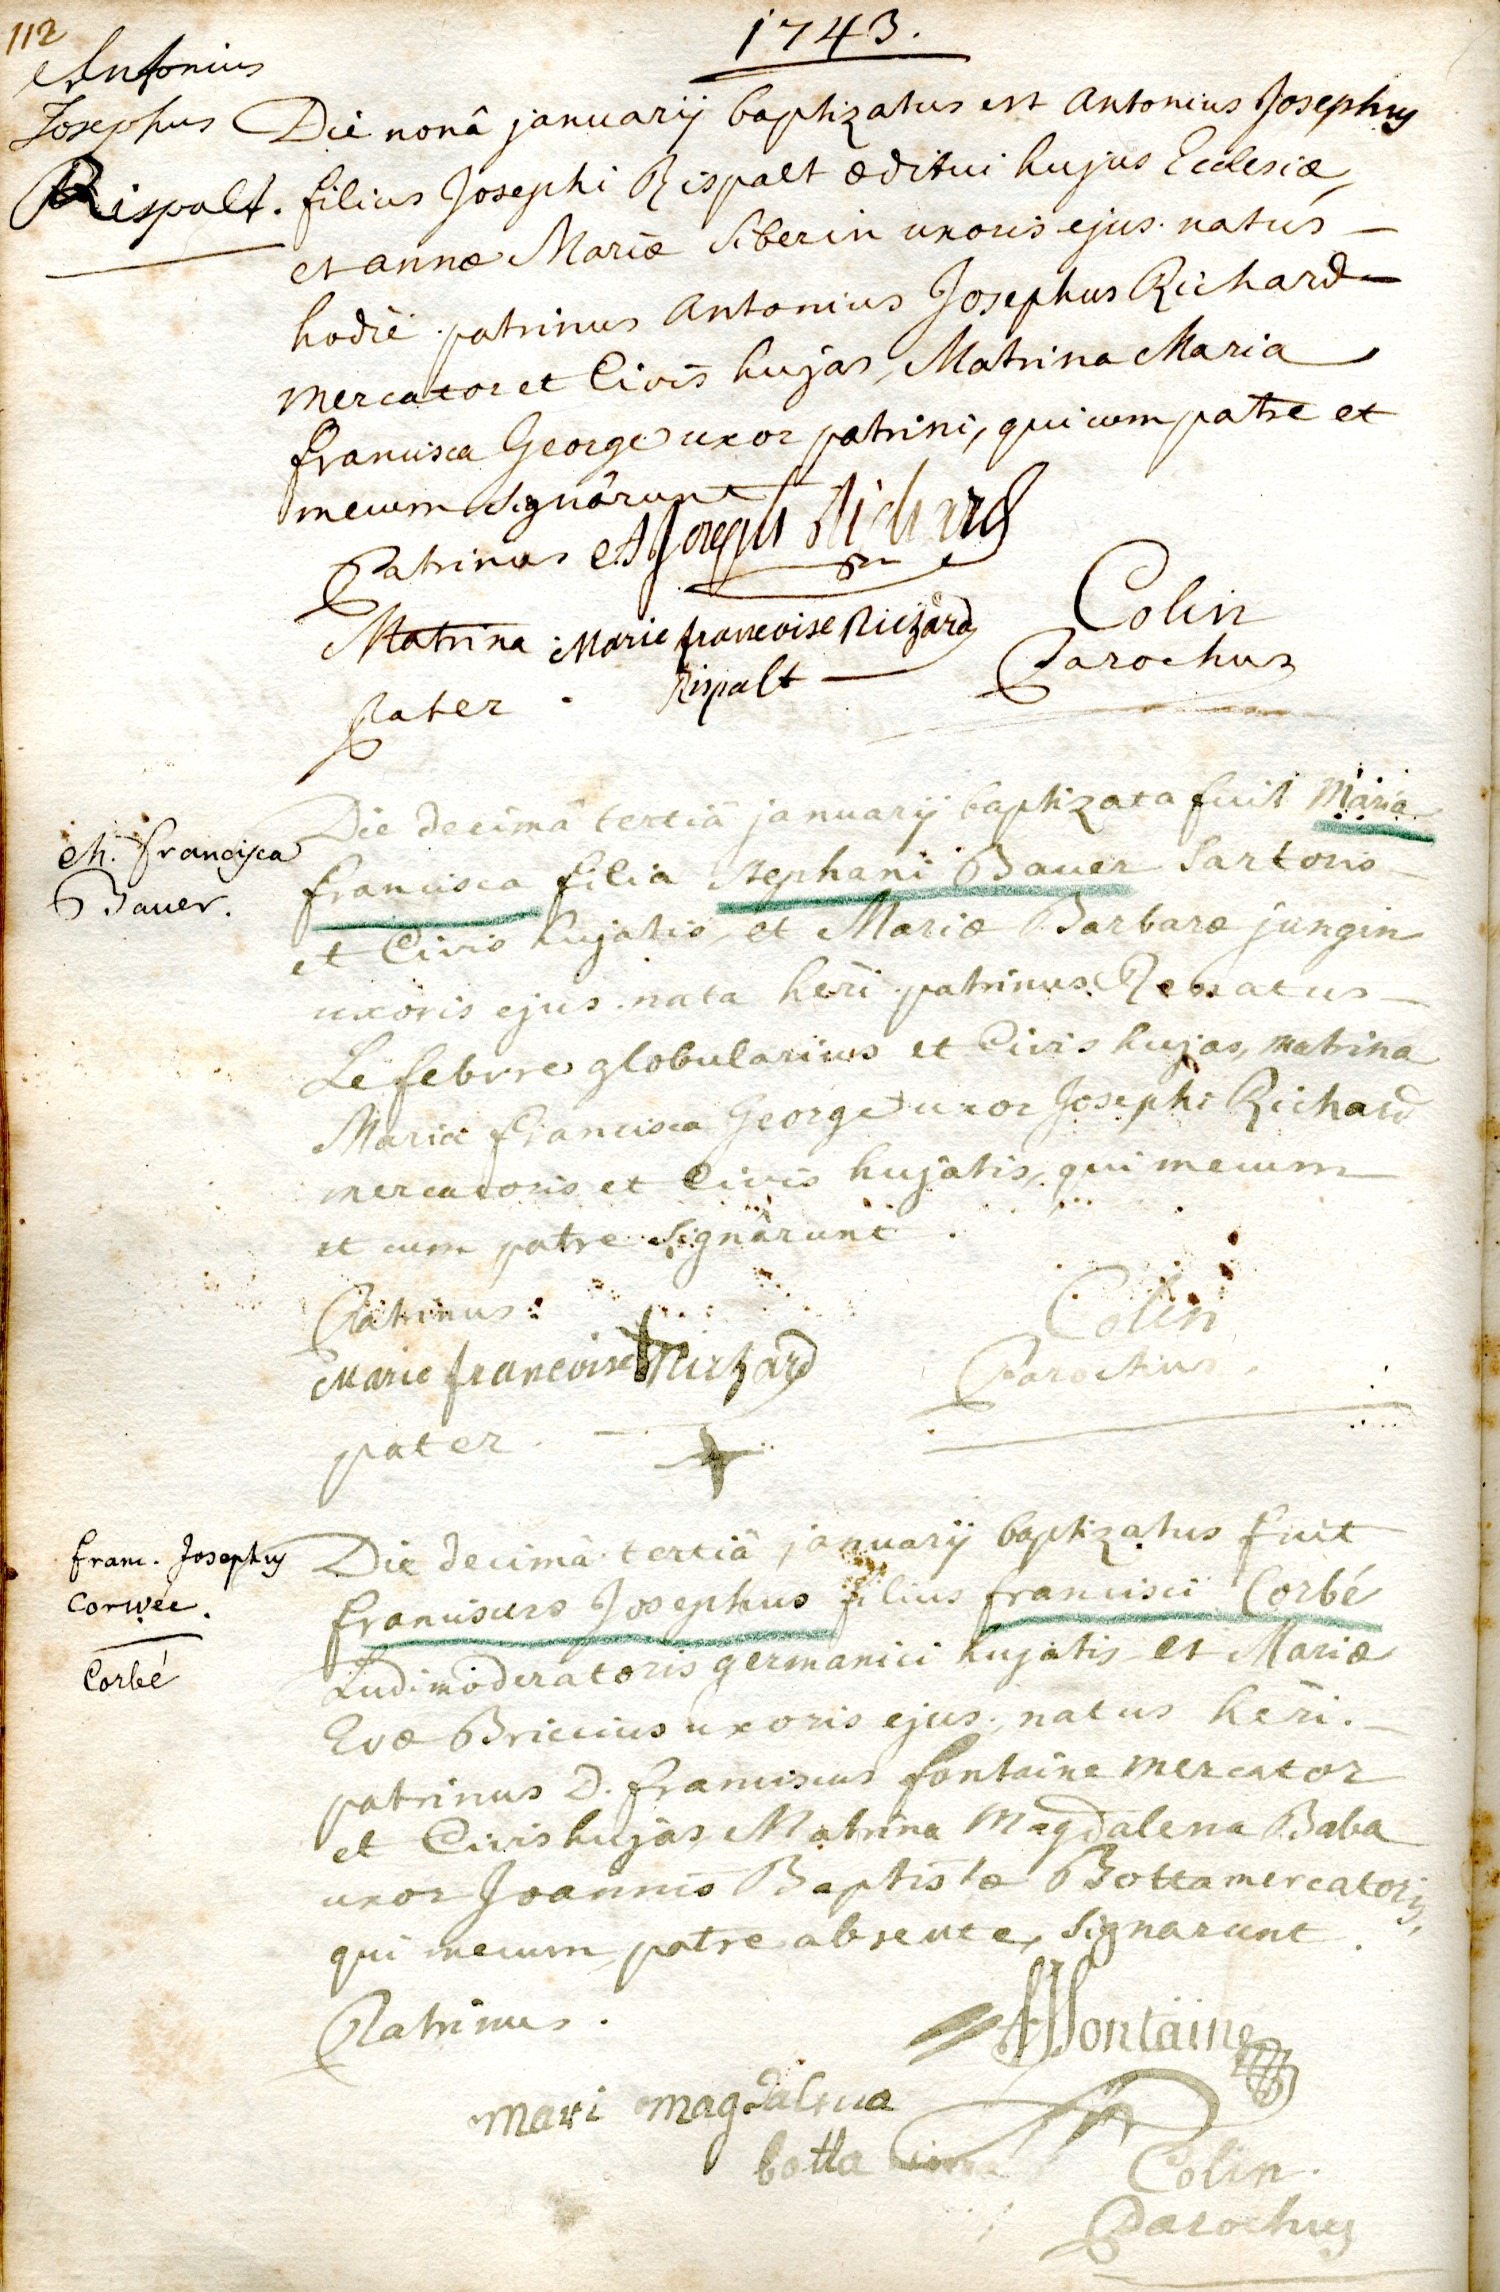 112
1743.
Antonius
Josephus
Rispalt.
Die nonâ januarij baptizatus est Antonius Josephus
filius Josephi Rispalt æditui hujus Ecclesiæ,
et annæ Mariæ Siberin uxoris ejus. natus
hodie. patrinus Antonius Josephus Richard
mercator et Civis hujas, Matrina Maria
francisca George uxor patrini, qui cum patre et
mecum signârunt
Patrinus A Joseph Richard
Matrina Marie francoise Richard
Colin
Parochus
pater . Rispalt
M. francisca
Bauer.
Die decimâ tertiâ januarij baptizata fuit Maria
francisca filia Stephani Bauer Sartoris
et Civis hujatis, et Mariæ Barbaræ jungin
uxoris ejus. nata heri. patrinus Renatus
Lefebvre globularius et Civis hujas, matrina
Maria francisca George uxor Josephi Richard
mercatoris et Civis hujatis, qui mecum
et cum patre signârunt .
Patrinus:
Marie francoise Richard
Colin
Parochus.
pater.
franc. Josephus
Corwée.
Corbé
Die decimâ tertiâ januarij baptizatus fuit
franciscus Josephus filius francisci Corbé
Ludimoderatoris germanici hujatis et Mariæ
Evæ Briccius uxoris ejus, natus heri.
patrinus D. franciscus fontaine mercator
et Civis hujas, Matrina Magdalena Baba
uxor Joannis Baptistæ Botta mercatoris,
qui mecum, patre absente, signarunt .
Patrinus .
fontaine
mari magdalena
botta
Colin.
Parochus